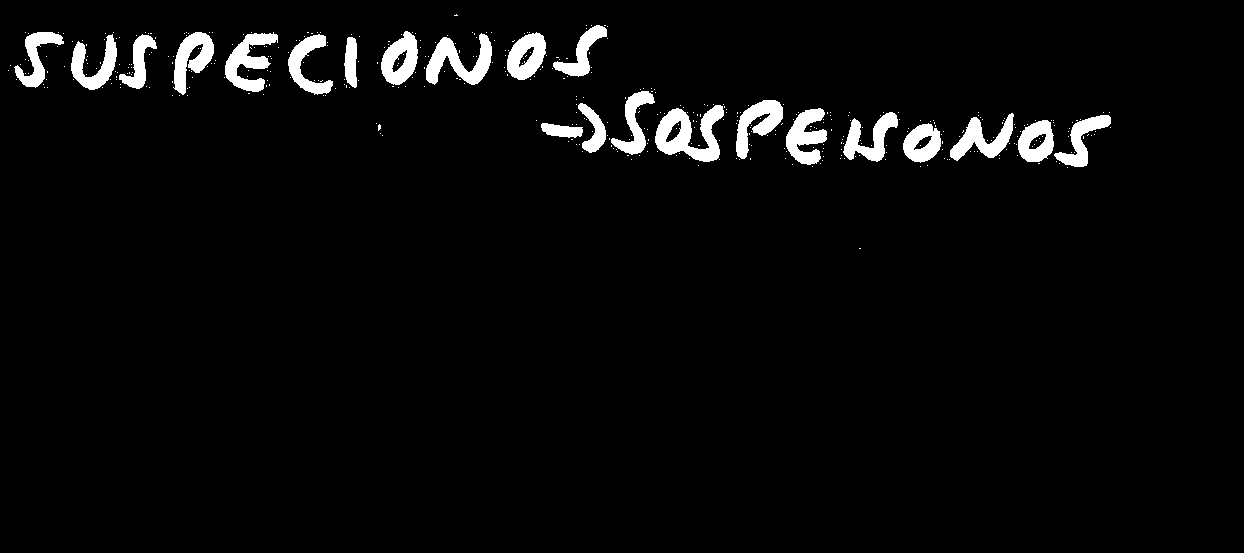 SUSPECIONOS
→SOSPEISONOS